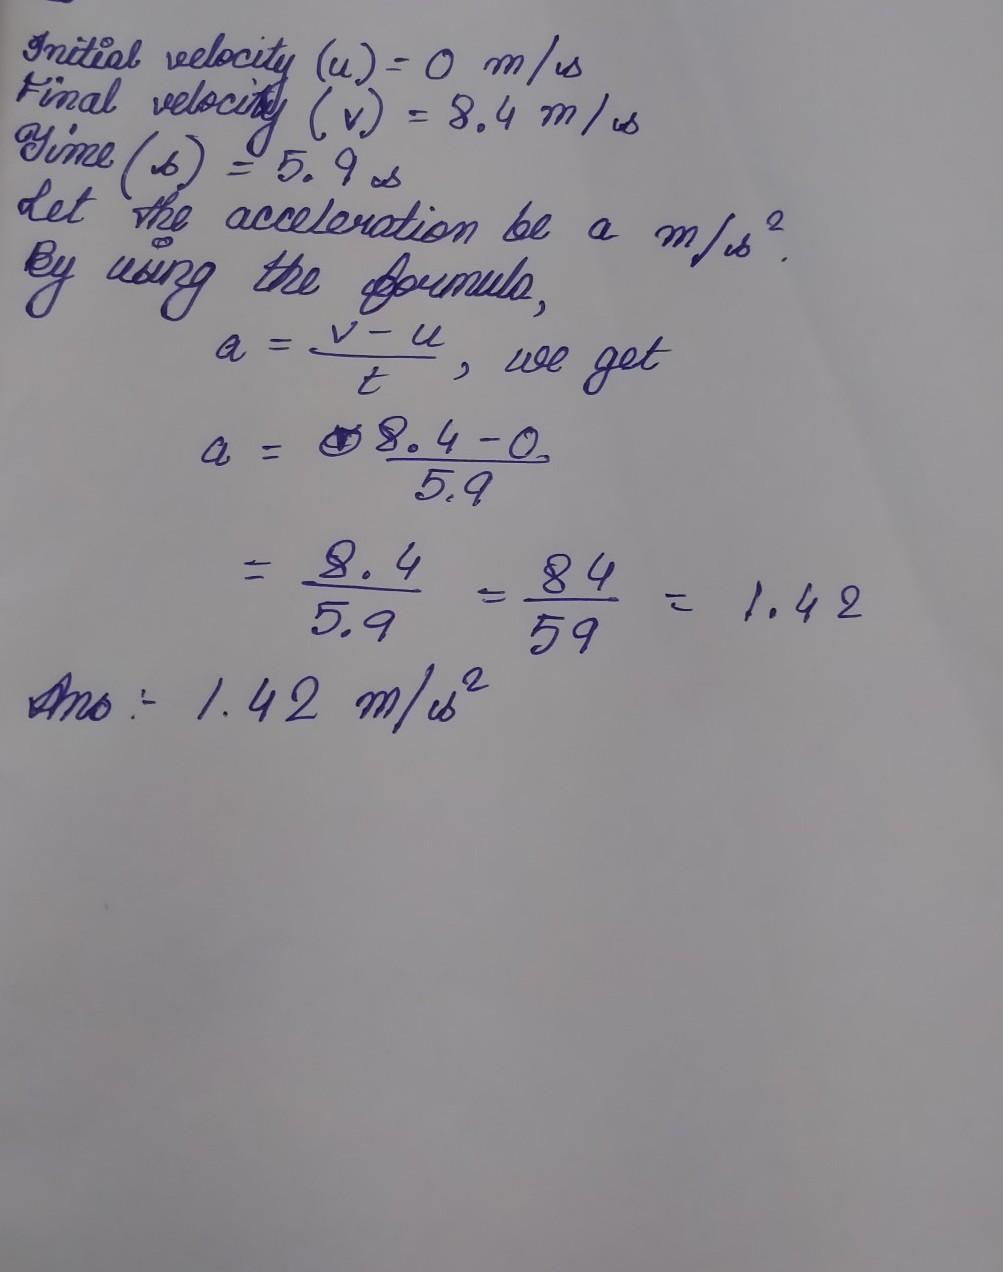 Initial velocity (u) = 0 m/s
Final velocity (v) = 8.4 m/s
Time (s) = 5.9 s
Let the acceleration be a m/s².
By using the formula,
a = v - u / t, we get
a = 8.4 - 0 / 5.9
= 8.4 / 5.9 = 84 / 59 = 1.42
Ans :- 1.42 m/s²